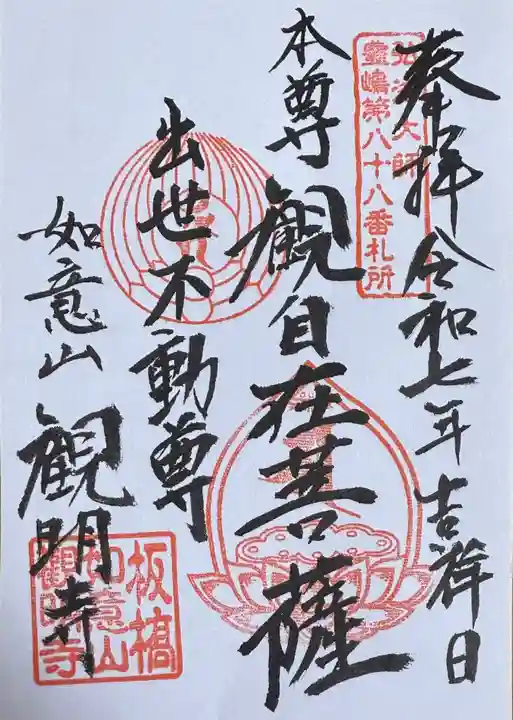 奉拝 令和七年吉祥日
弘法大師
霊場第八十八番札所
本尊 観自在菩薩
出世不動尊
如意山 観明寺
板橋
如意山
観明寺